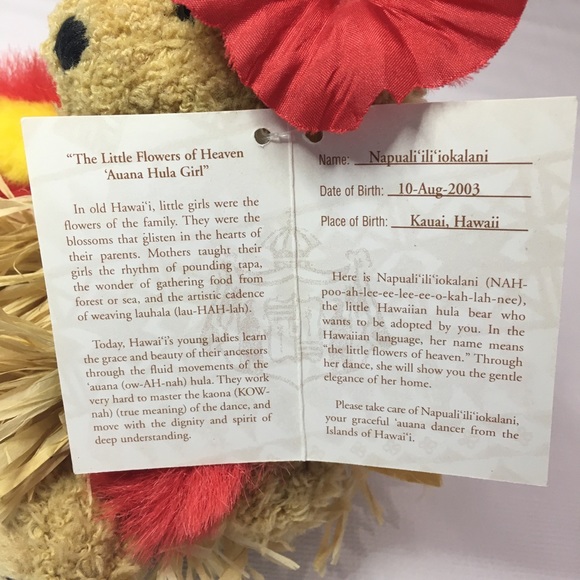 “The Little Flowers of Heaven
‘Auana Hula Girl”
In old Hawai‘i, little girls were the
flowers of the family. They were the
blossoms that glisten in the hearts of
their parents. Mothers taught their
girls the rhythm of pounding tapa,
the wonder of gathering food from
forest or sea, and the artistic cadence
of weaving lauhala (lau-HAH-lah).
Today, Hawai‘i’s young ladies learn
the grace and beauty of their ancestors
through the fluid movements of the
‘auana (ow-AH-nah) hula. They work
very hard to master the kaona (KOW-
nah) (true meaning) of the dance, and
move with the dignity and spirit of
deep understanding.
Name: Napuali‘ili‘iokalani
Date of Birth: 10-Aug-2003
Place of Birth: Kauai, Hawaii
Here is Napuali‘ili‘iokalani (NAH-
poo-ah-lee-ee-lee-ee-o-kah-lah-nee),
the little Hawaiian hula bear who
wants to be adopted by you. In the
Hawaiian language, her name means
“the little flowers of heaven.” Through
her dance, she will show you the gentle
elegance of her home.
Please take care of Napuali‘ili‘iokalani,
your graceful ‘auana dancer from the
Islands of Hawai‘i.